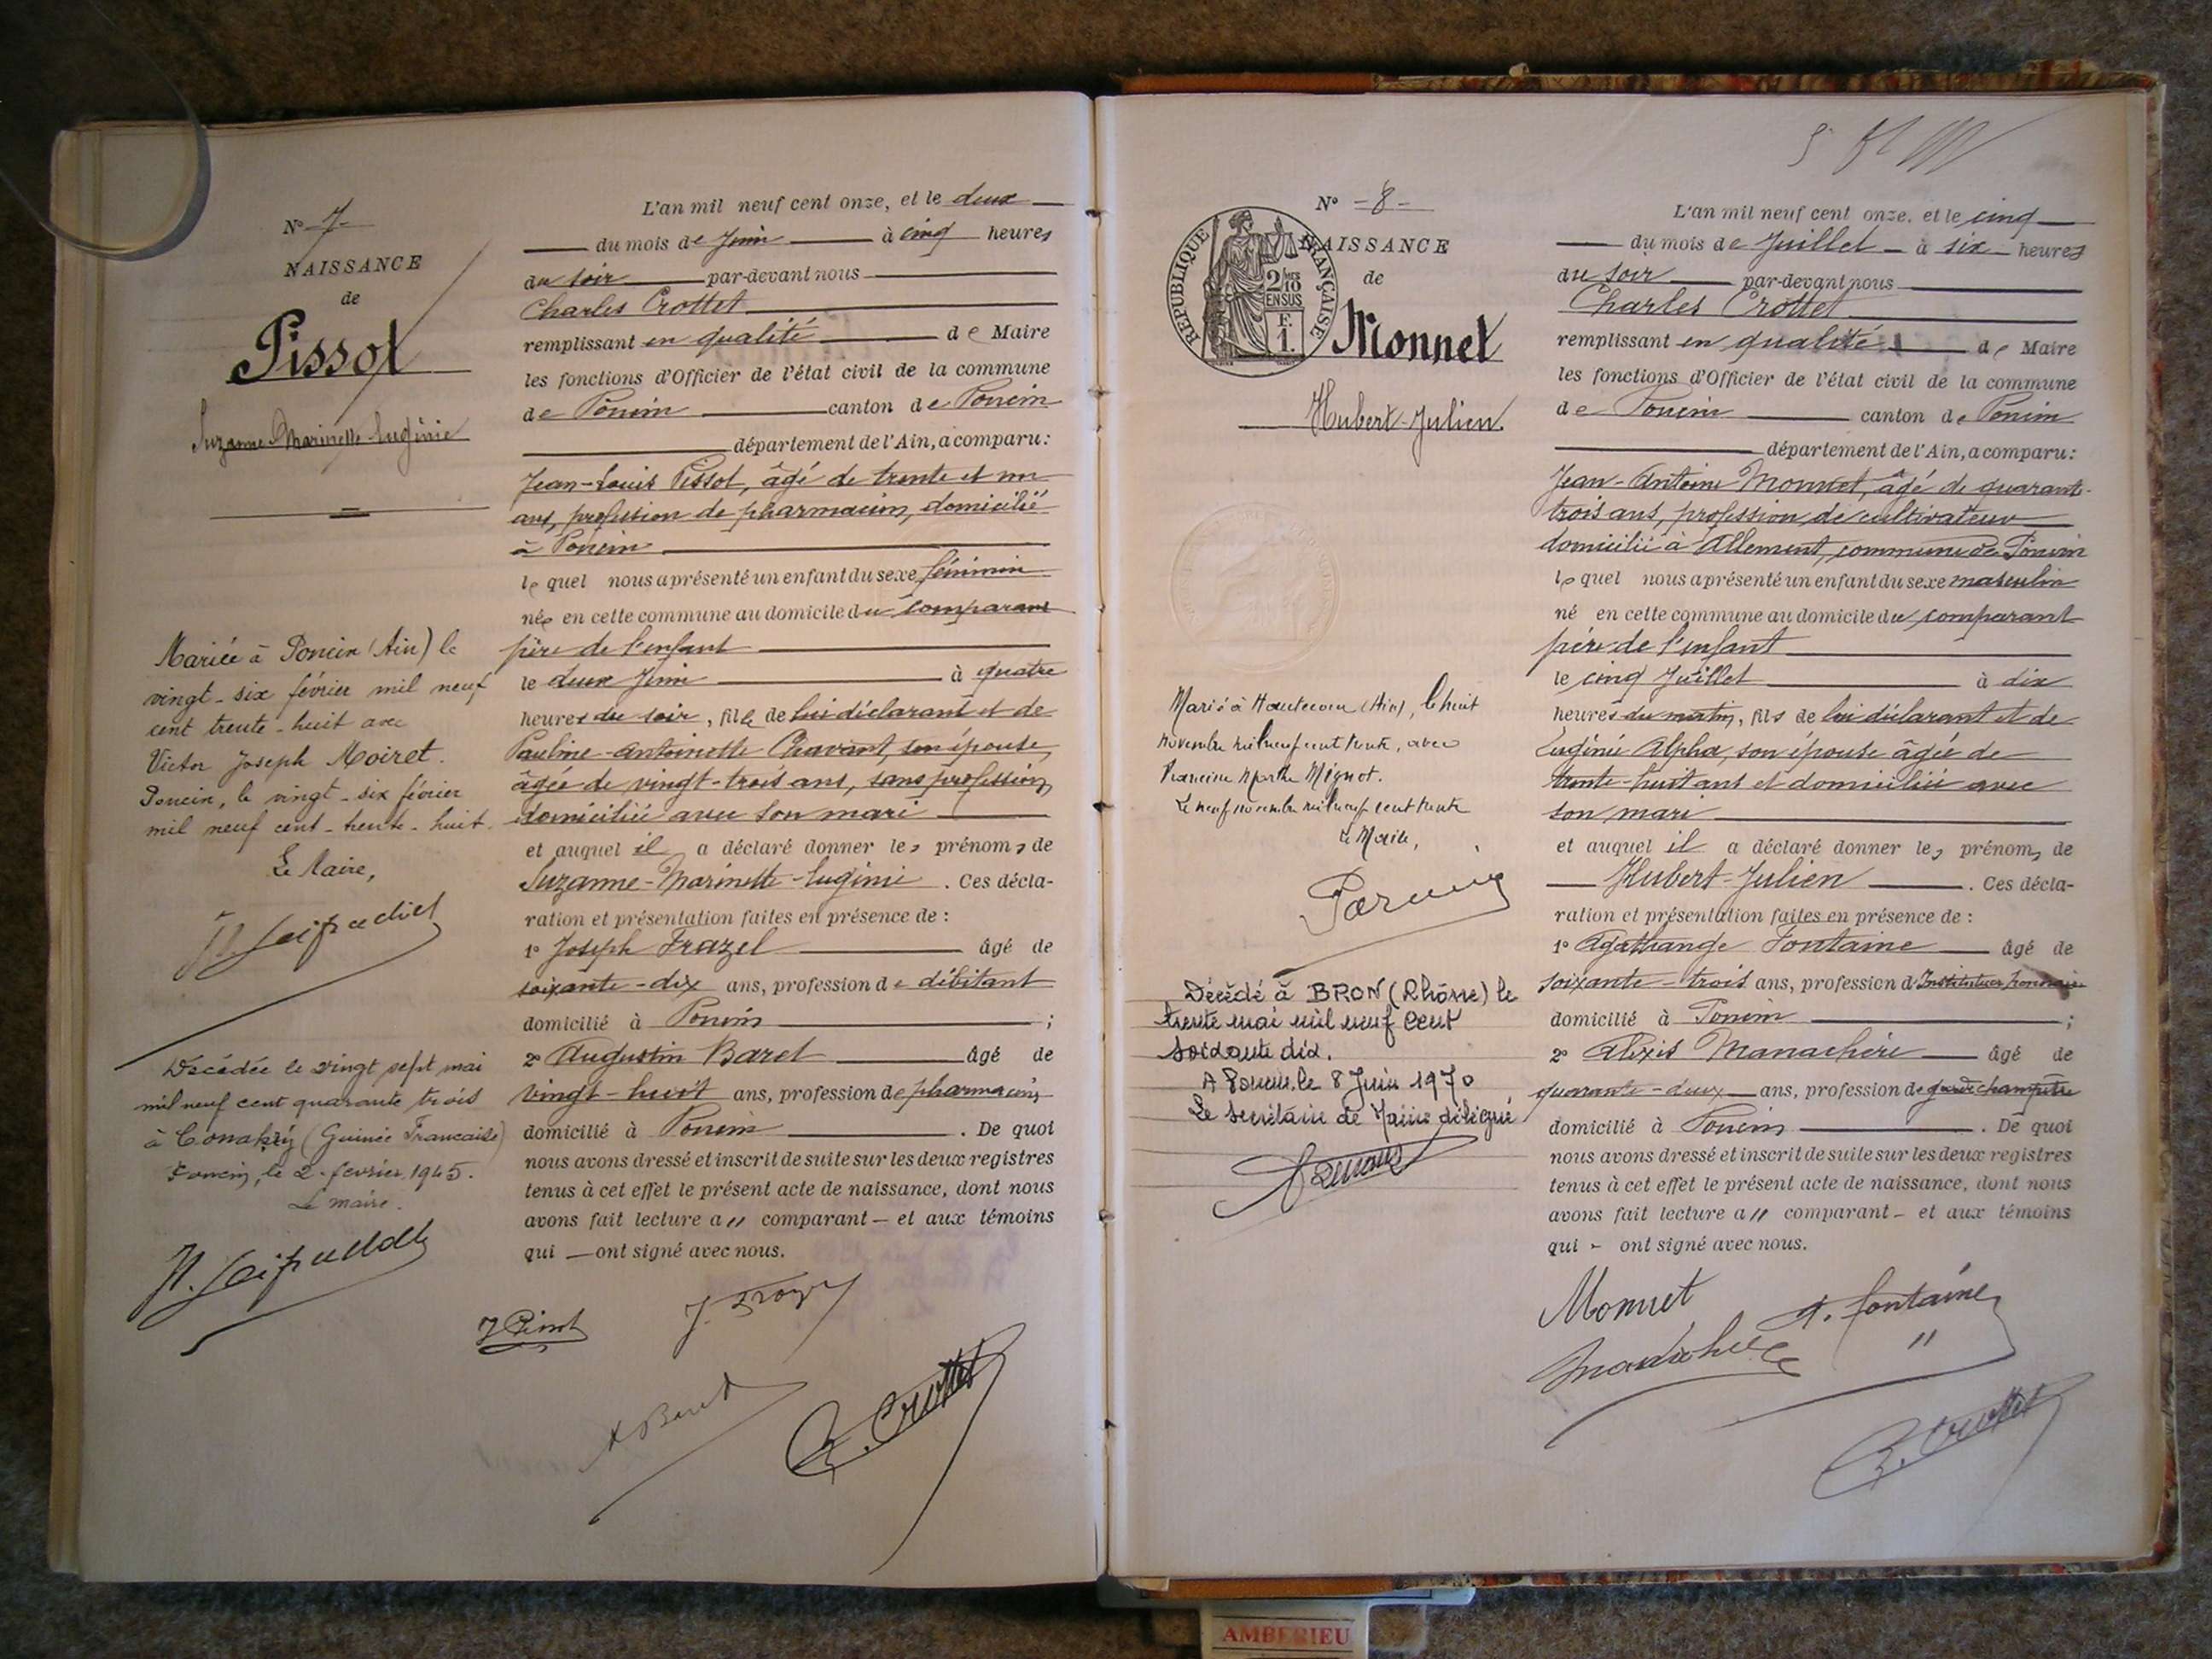 N° 7
NAISSANCE
de
Pissot
Suzanne-Marinette-Eugénie
Mariée à Poncin (Ain) le
vingt-six février mil neuf
cent trente-huit avec
Victor Joseph Moiret.
Poncin, le vingt-six février
mil neuf cent-trente-huit.
Le Maire,
Décédée le vingt sept mai
mil neuf cent quarante trois
à Conakry (Guinée Francaise)
Poncin, le 2 fevrier 1945.
Le maire.
L'an mil neuf cent onze, et le deux
du mois de Juin à cinq heures
du soir par-devant nous
Charles Crottet
remplissant en qualité de Maire
les fonctions d'Officier de l'état civil de la commune
de Poncin canton de Poncin
département de l'Ain, a comparu:
Jean-Louis Pissot, âgé de trente et un
ans, profession de pharmacien, domicilié
à Poncin
lequel nous a présenté un enfant du sexe féminin
née en cette commune au domicile du comparant
père de l'enfant
le deux Juin à quatre
heures du soir, fille de lui déclarant et de
Pauline-Antoinette Chavant, son épouse,
âgée de vingt-trois ans, sans profession,
domiciliée avec son mari
et auquel il a déclaré donner les prénoms de
Suzanne-Marinette-Eugénie. Ces décla-
ration et présentation faites en présence de :
1° Joseph Frazel âgé de
soixante-dix ans, profession de débitant
domicilié à Poncin ;
2° Augustin Baret âgé de
vingt-huit ans, profession de pharmacien
domicilié à Poncin. De quoi
nous avons dressé et inscrit de suite sur les deux registres
tenus à cet effet le présent acte de naissance, dont nous
avons fait lecture a " comparant — et aux témoins
qui — ont signé avec nous.
J Pissot
A Baret
C. Crottet
N° -8-
RÉPUBLIQUE FRANÇAISE
2/10 EN SUS
F. 1.
NAISSANCE
de
Monnet
Hubert-Julien
Marié à Hautecour (Ain), le huit
novembre mil neuf cent trente, avec
Francine Marthe Mignot.
Le neuf novembre mil neuf cent trente
Le Maire,
Décédé à BRON (Rhône) le
trente mai mil neuf cent
soixante dix.
A Poncin le 8 Juin 1970
Le secrétaire de Mairie délégué
L'an mil neuf cent onze, et le cinq
du mois de Juillet à six heures
du soir par-devant nous
Charles Crottet
remplissant en qualité de Maire
les fonctions d'Officier de l'état civil de la commune
de Poncin canton de Poncin
département de l'Ain, a comparu:
Jean-Antoine Monnet, âgé de quarante-
trois ans, profession de cultivateur
domicilié à Allement, commune de Poncin
lequel nous a présenté un enfant du sexe masculin
né en cette commune au domicile du comparant
père de l'enfant
le cinq Juillet à dix
heures du matin, fils de lui déclarant et de
Eugénie Alpha, son épouse âgée de
trente-huit ans et domiciliée avec
son mari
et auquel il a déclaré donner les prénoms de
Hubert-Julien. Ces décla-
ration et présentation faites en présence de :
1° Agathange Fontaine âgé de
soixante-trois ans, profession d'Instituteur honoraire
domicilié à Poncin ;
2° Alexis Manachère âgé de
quarante-deux ans, profession de garde champêtre
domicilié à Poncin. De quoi
nous avons dressé et inscrit de suite sur les deux registres
tenus à cet effet le présent acte de naissance, dont nous
avons fait lecture a " comparant — et aux témoins
qui - ont signé avec nous.
Monnet
A. Fontaine
C. Crottet
AMBERIEU